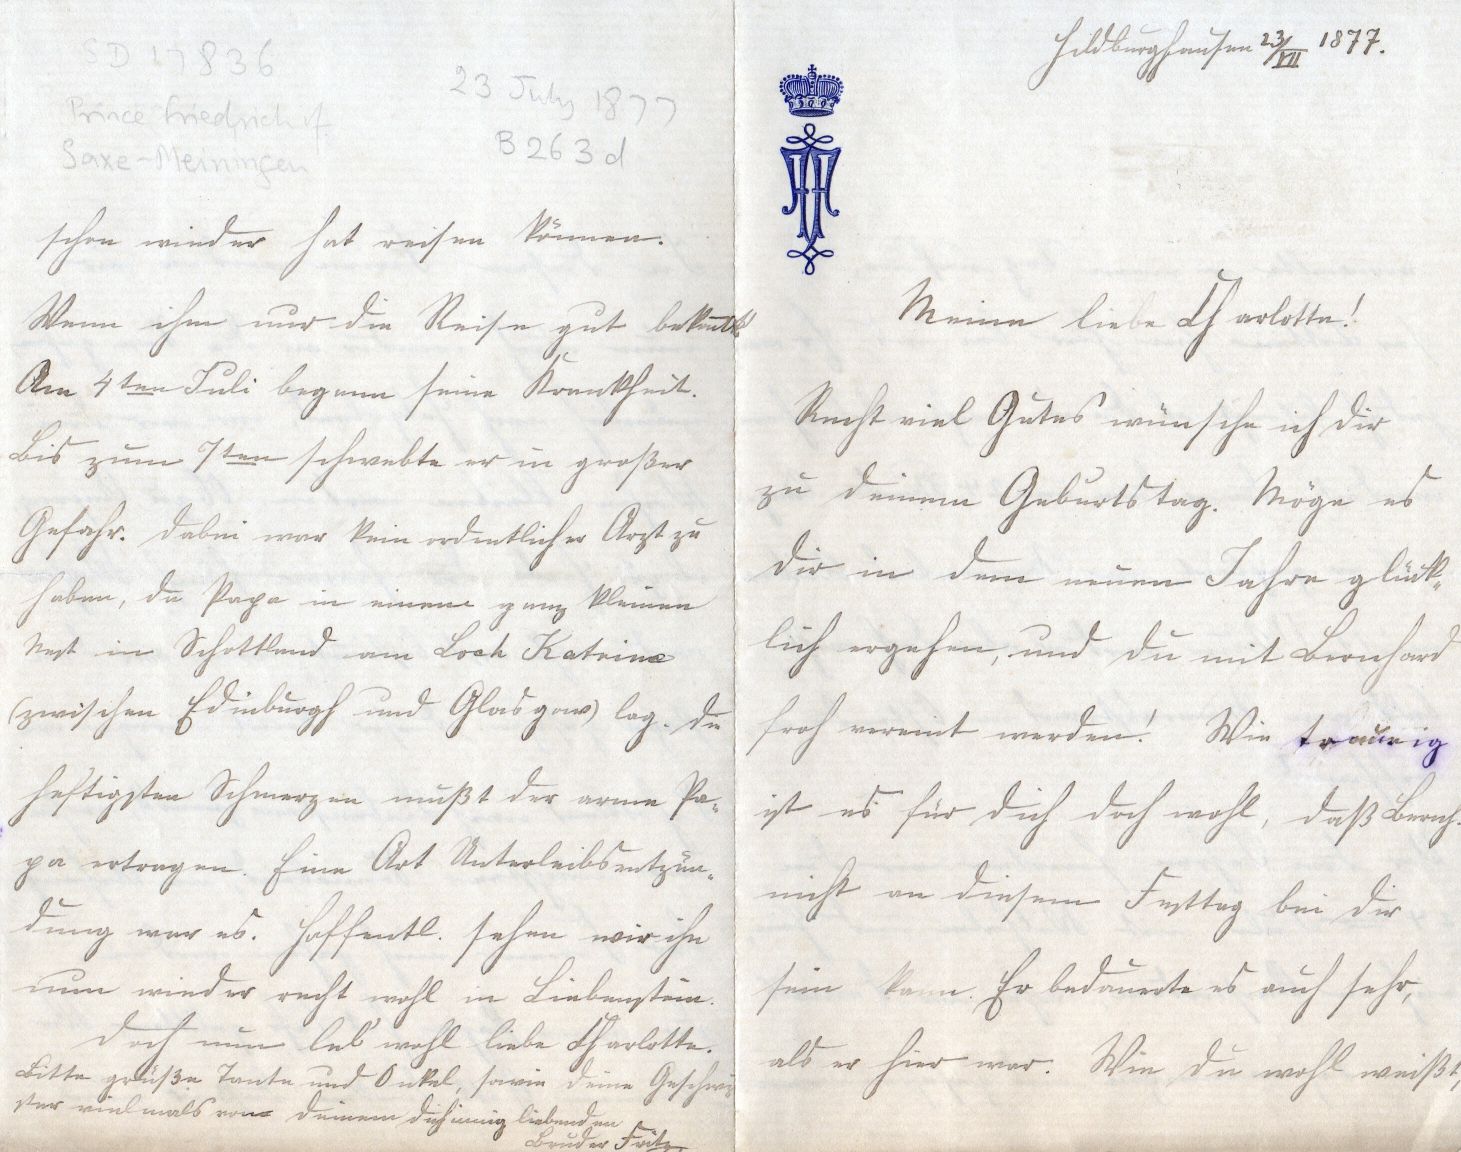 Hildburghausen 23/VII 1877.
Meine liebe Charlotte!
Recht viel Gutes wünsche ich Dir
zu Deinem Geburtstag. Möge es
Dir in dem neuen Jahre glück-
lich ergehen, und Du mit Bernhard
froh vereint werden! Wie traurig
ist es für Dich doch wohl, daß Bernh.
nicht an diesem Festtag bei Dir
sein kann. Er bedauerte es auch sehr,
als er hier war. Wie Du wohl weißt,
SD 17836
Prince Friedrich of
Saxe-Meiningen
23 July 1877
B 263d
schon wieder hat reisen können.
Wenn ihm nur die Reise gut bekommt
Am 4ten Juli begann seine Krankheit.
Bis zum 7ten schwebte er in großer
Gefahr. Dabei war kein ordentlicher Arzt zu
haben, da Papa in einem ganz kleinen
Nest in Schottland am Loch Katrine
(zwischen Edinburgh und Glasgow) lag. Die
heftigsten Schmerzen mußt der arme Pa-
pa ertragen. Eine Art Unterleibsentzün-
dung war es. Hoffentl. sehen wir ihn
nun wieder recht wohl in Liebenstein.
Doch nun leb' wohl liebe Charlotte.
Bitte grüße Tante und Onkel, sowie Deine Geschwi-
ster vielmals von Deinem Dich innig liebenden
Bruder Fritz